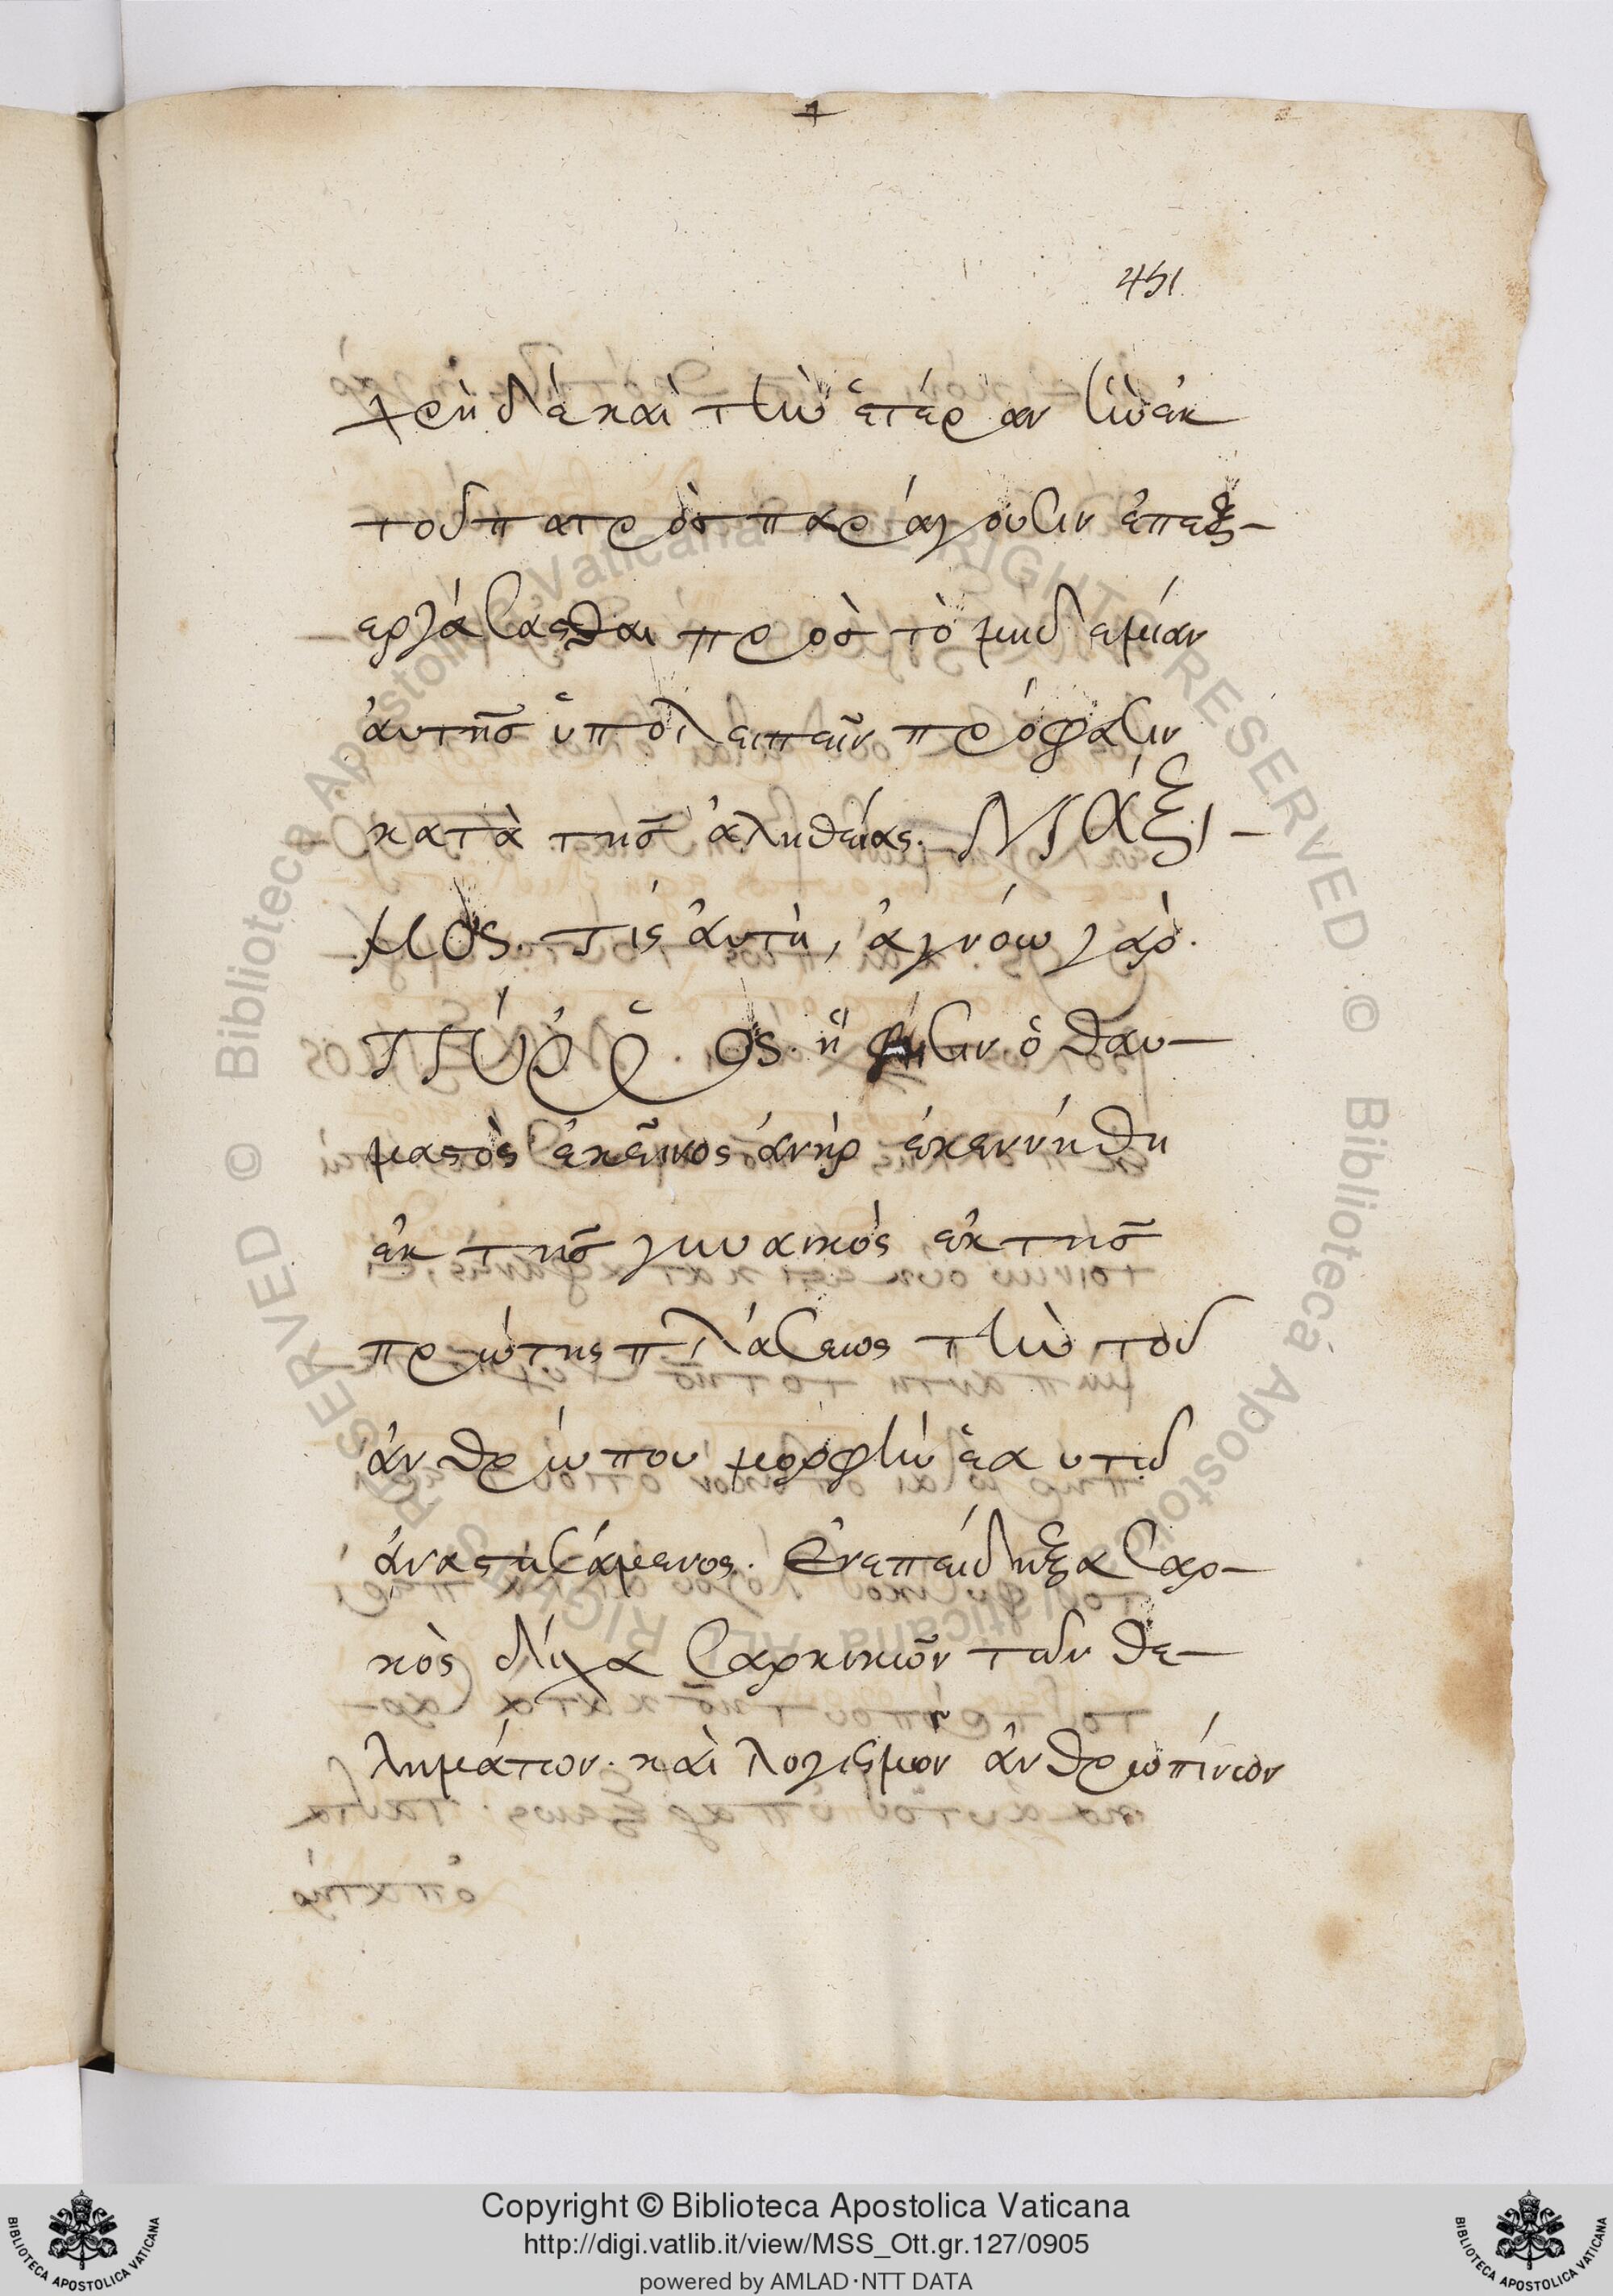 451
χρὴ δὲ καὶ τὴν ἑτέραν ἣν ἐκ
τοῦ πατρὸς παράγουσιν ἐπεξ-
εργάσασθαι πρὸς τὸ μηδεμίαν
αὐτῆς ὑπολειπεῖν πρόφασιν
κατὰ τῆς ἀληθείας. ΜΆΞΙ-
ΜΟΣ. τίς ἀυτὴ, ἀγνόω γὰρ.
ΠΎῤῥΟΣ. ἥ φησιν ὁ θαυ-
μαστὸς ἐκεῖνος ἀνὴρ ἐγεννήθη
ἐκ τῆς γυναικὸς ἐκ τῆς
πρώτης πλάσεως τὴν τοῦ
ἀνθρώπου μορφὴν ἑαυτῷ
ἀναστησάμενος. ἐν ἐπειδήξα σαρ-
κὸς δίχα σαρκικῶν τῶν θε-
λημάτων. καὶ λογισμῶν ἀνθρωπίνων
Copyright © Biblioteca Apostolica Vaticana
http://digi.vatlib.it/view/MSS_Ott.gr.127/0905
powered by AMLAD·NTT DATA
BIBLIOTECA APOSTOLICA VATICANA
BIBLIOTECA APOSTOLICA VATICANA
© Biblioteca Apostolica Vaticana ALL RIGHTS RESERVED
© Biblioteca Apostolica Vaticana ALL RIGHTS RESERVED